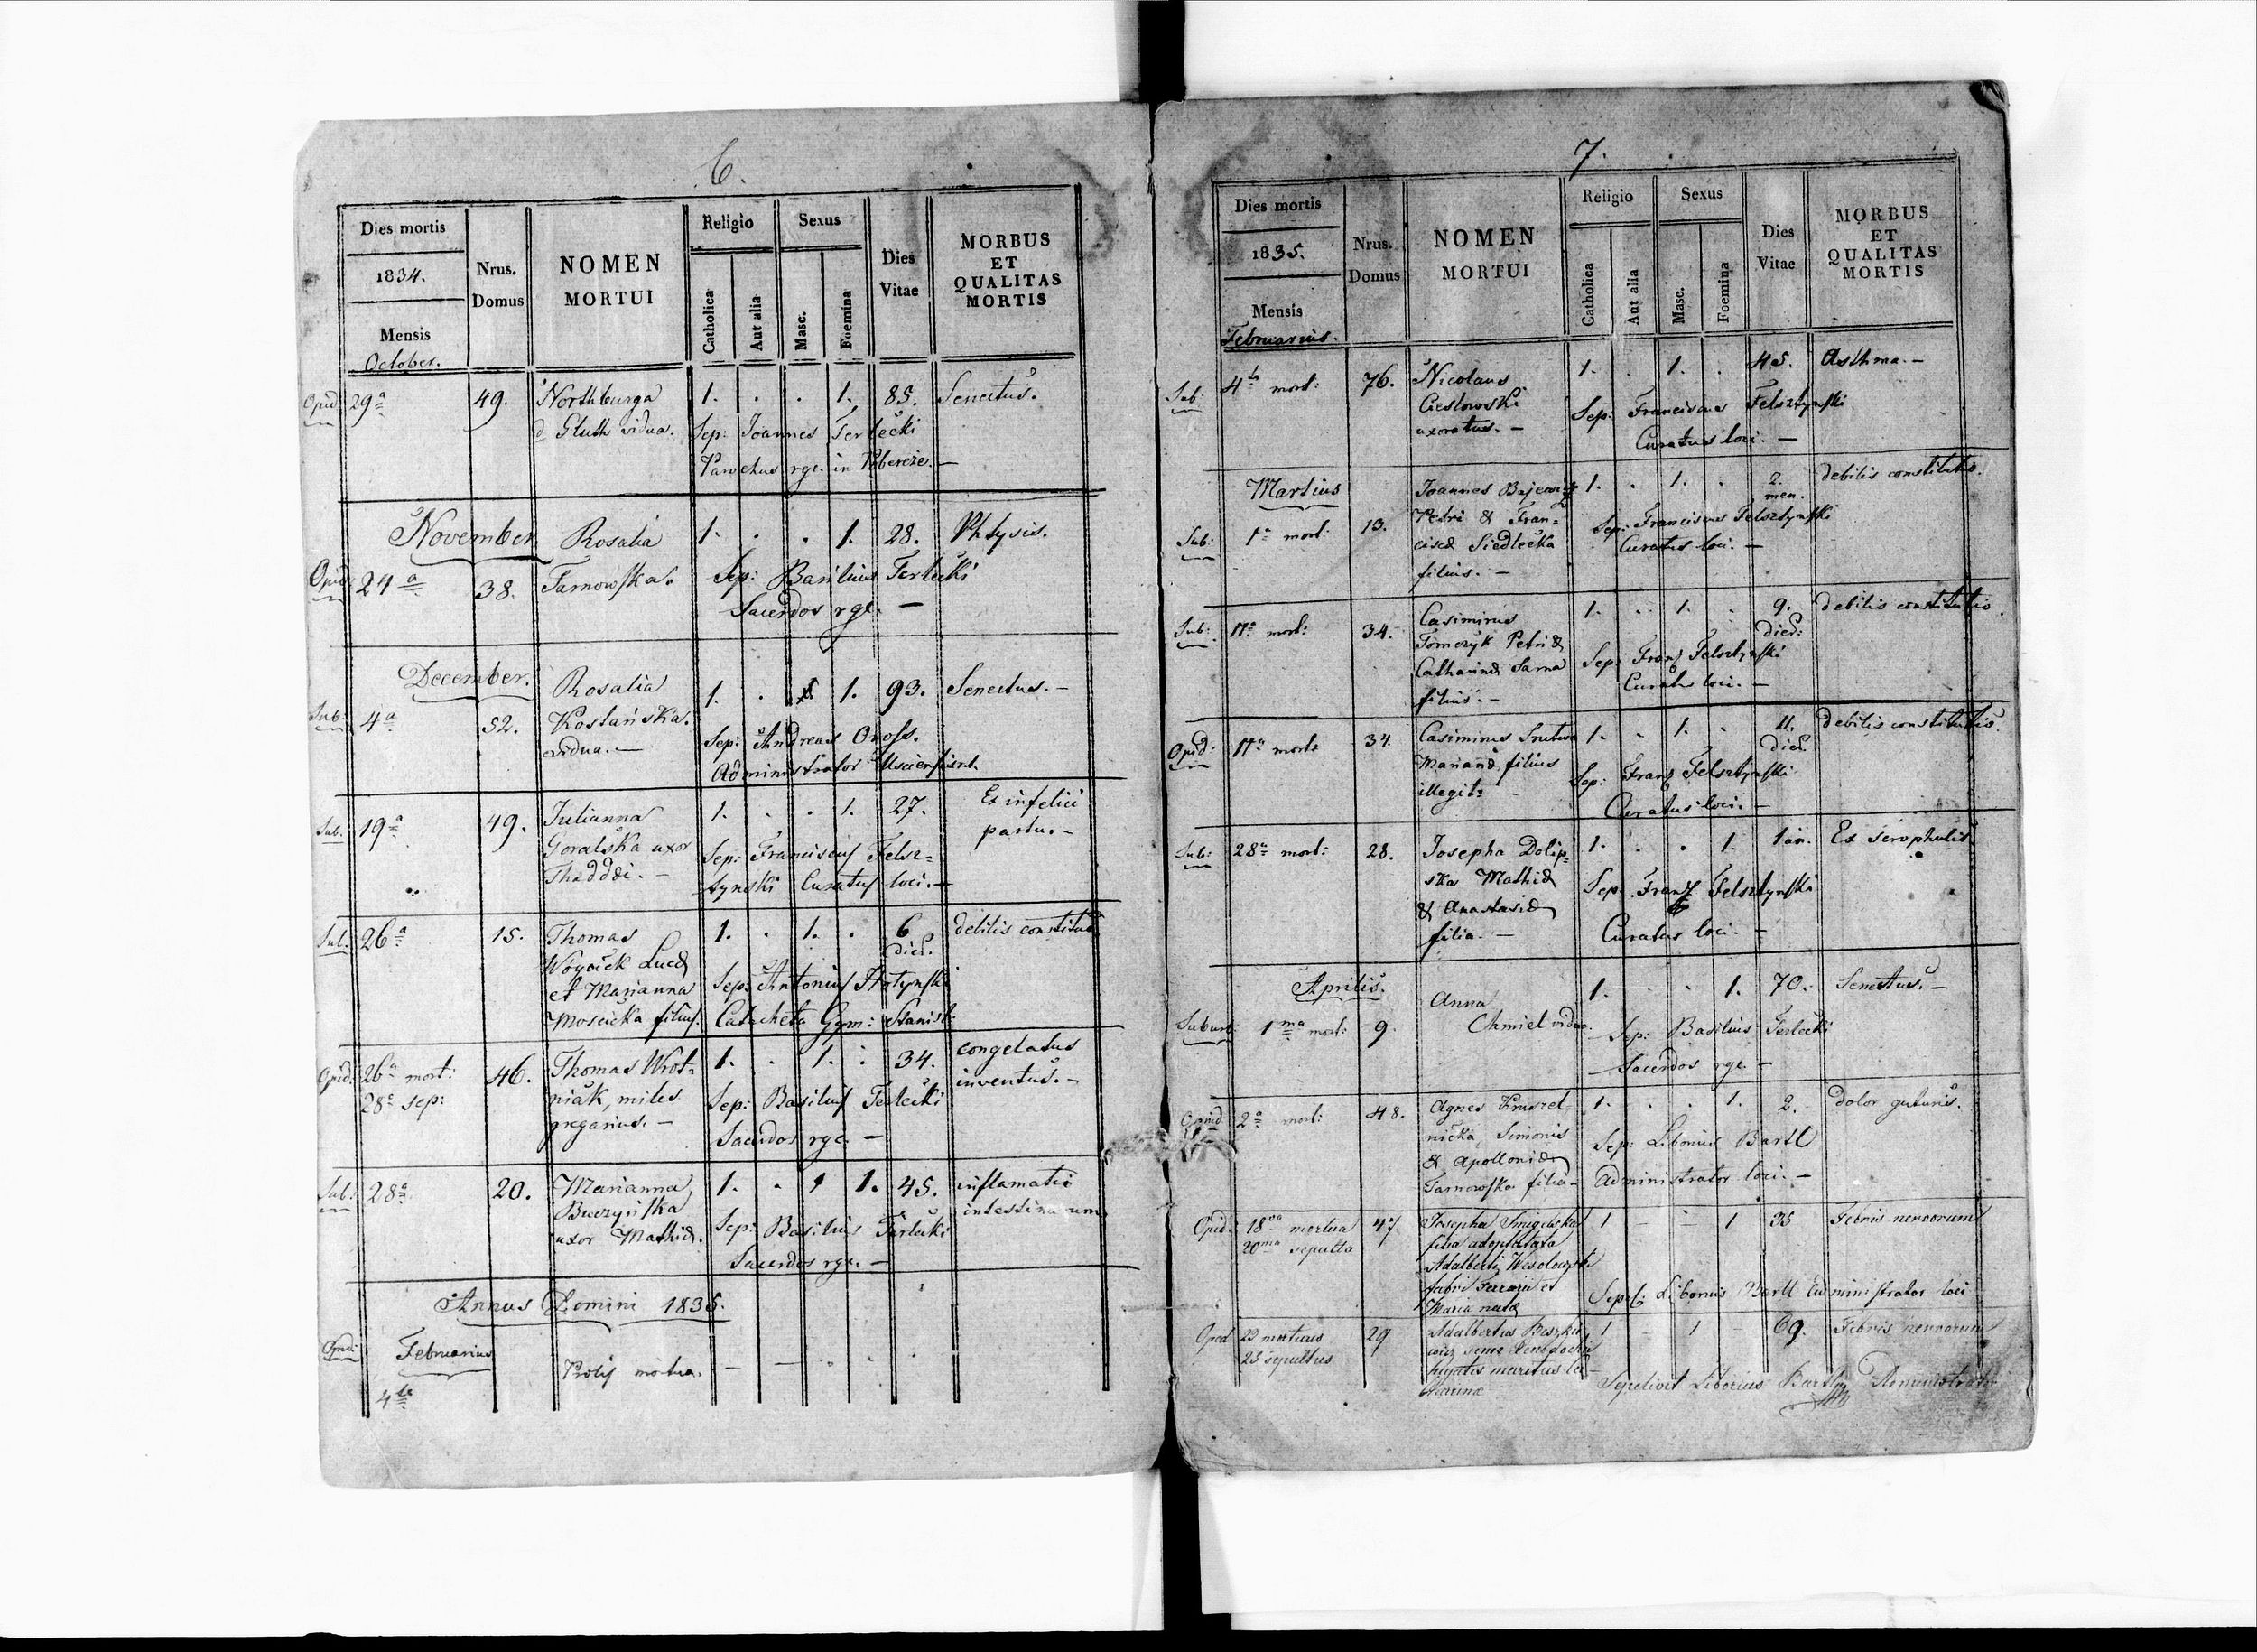 6.
Dies mortis
1834.
Mensis
October.
Nrus.
Domus
NOMEN
MORTUI
Religio
Catholica
Aut alia
Sexus
Masc.
Foemina
Dies
Vitae
MORBUS
ET
QUALITAS
MORTIS
Opid: 29a 49. Northburga 1. . . 1. 85. Senectus.
Gluth vidua. Sep: Joannes Terlecki
Parochus rgc. in Pobereże. —
November Rosalia 1. . . 1. 28. Phtysis.
Opid: 38. Tarnowska. Sep: Basilius Terlecki
Sacerdos rgc. —
December. Rosalia 1. . 1. 93. Senectus. —
Sub: 4a 52. Kostańska. Sep: Andreas
vidua. — Administrator
Sub: 19a 49. Julianna 1. . . 1. 27. Ex infelici
Goralska uxor Sep: Franciscus Felsz= partu. —
Thaddaei. — tynski Curatus loci. —
Sub: 26a 15. Thomas 1. . 1. . 6 debilis
Woyciek Lucae dier.
et Marianna Sep: Antonius
Moscicka filius. Catecheta Gym: Stanisl:
Opid: 26a mort: 46. Thomas Wrot= 1. . 1. . 34. congelatus
28a sep: niak, miles Sep: Basilius Terlecki inventus. —
gregarius. — Sacerdos rgc. —
Sub: 28a 20. Marianna 1. . 1. 45. inflamatio
Buczyńska Sep: Basilius Terlecki intestinarum
uxor Mathiae. Sacerdos rgc. —
Annus Domini 1835.
Opid: Februarius Prolis mortua. — —
4te
7.
Dies mortis
1835.
Mensis
Februarius.
Nrus.
Domus
NOMEN
MORTUI
Religio
Catholica
Aut alia
Sexus
Masc.
Foemina
Dies
Vitae
MORBUS
ET
QUALITAS
MORTIS
Sub: 4ta mort: 76. Nicolaus 1. . 1. . 45. Asthma. —
Cieslowski Sep: Franciscus Felsztynski
uxoratus. — Curatus loci. —
Martius Joannes 1. . 1. . 2. debilis constitutio.
men.
Sub: 1a mort: 13. Petri & Fran= Sep: Franciscus Felsztynski
cisca Siedlecka Curatus loci. —
filius. —
Sub: mort: 34. Casimirus 1. . 1. . 9. debilis constitutio.
Tomczyk Petri & dier:
Catharina Sarna Sep: Franz Felsztynski
filius. — Curatus loci. —
Opid: mort: 34. Casimirus 1. . 1. . 11. debilis constitutio.
Marianae filius dier.
illegit: — Sep: Franz Felsztynski
Curatus loci. —
Sub: 28a mort: 28. Josepha Dolip= 1. . . 1. 1 an. Ex scrophulis.
ska Mathiae Sep: Franz Felsztynski
& Anastasiae Curatus loci. —
filia. —
Aprilis. Anna 1. . . 1. 70. Senectus. —
Suburb: 1ma mort: 9. Chmiel vidua. Sep: Basilius Terlecki
Sacerdos rgc. —
Opid 2a mort: 48. Agnes 1. . . 1. 2. dolor guturis.
nicka Simonis Sep: Liborius Bartl
& Apolloniae Administrator loci. —
Tarnowska filia —
Opid: 18va mortua 47. Josepha Smigelska 1 — 1 35 Febris nervorum
20ma sepulta filia adoptata
Adalberti Wesolowski
fabri et Sepel: Liborius Bartl administrator loci
Maria nata
Opid 23 mortuus 29 Adalbertus 1 — 1 — 69. Febris nervorum
25 sepultus
maritus Sepelivit Liborius Bartl Administrator